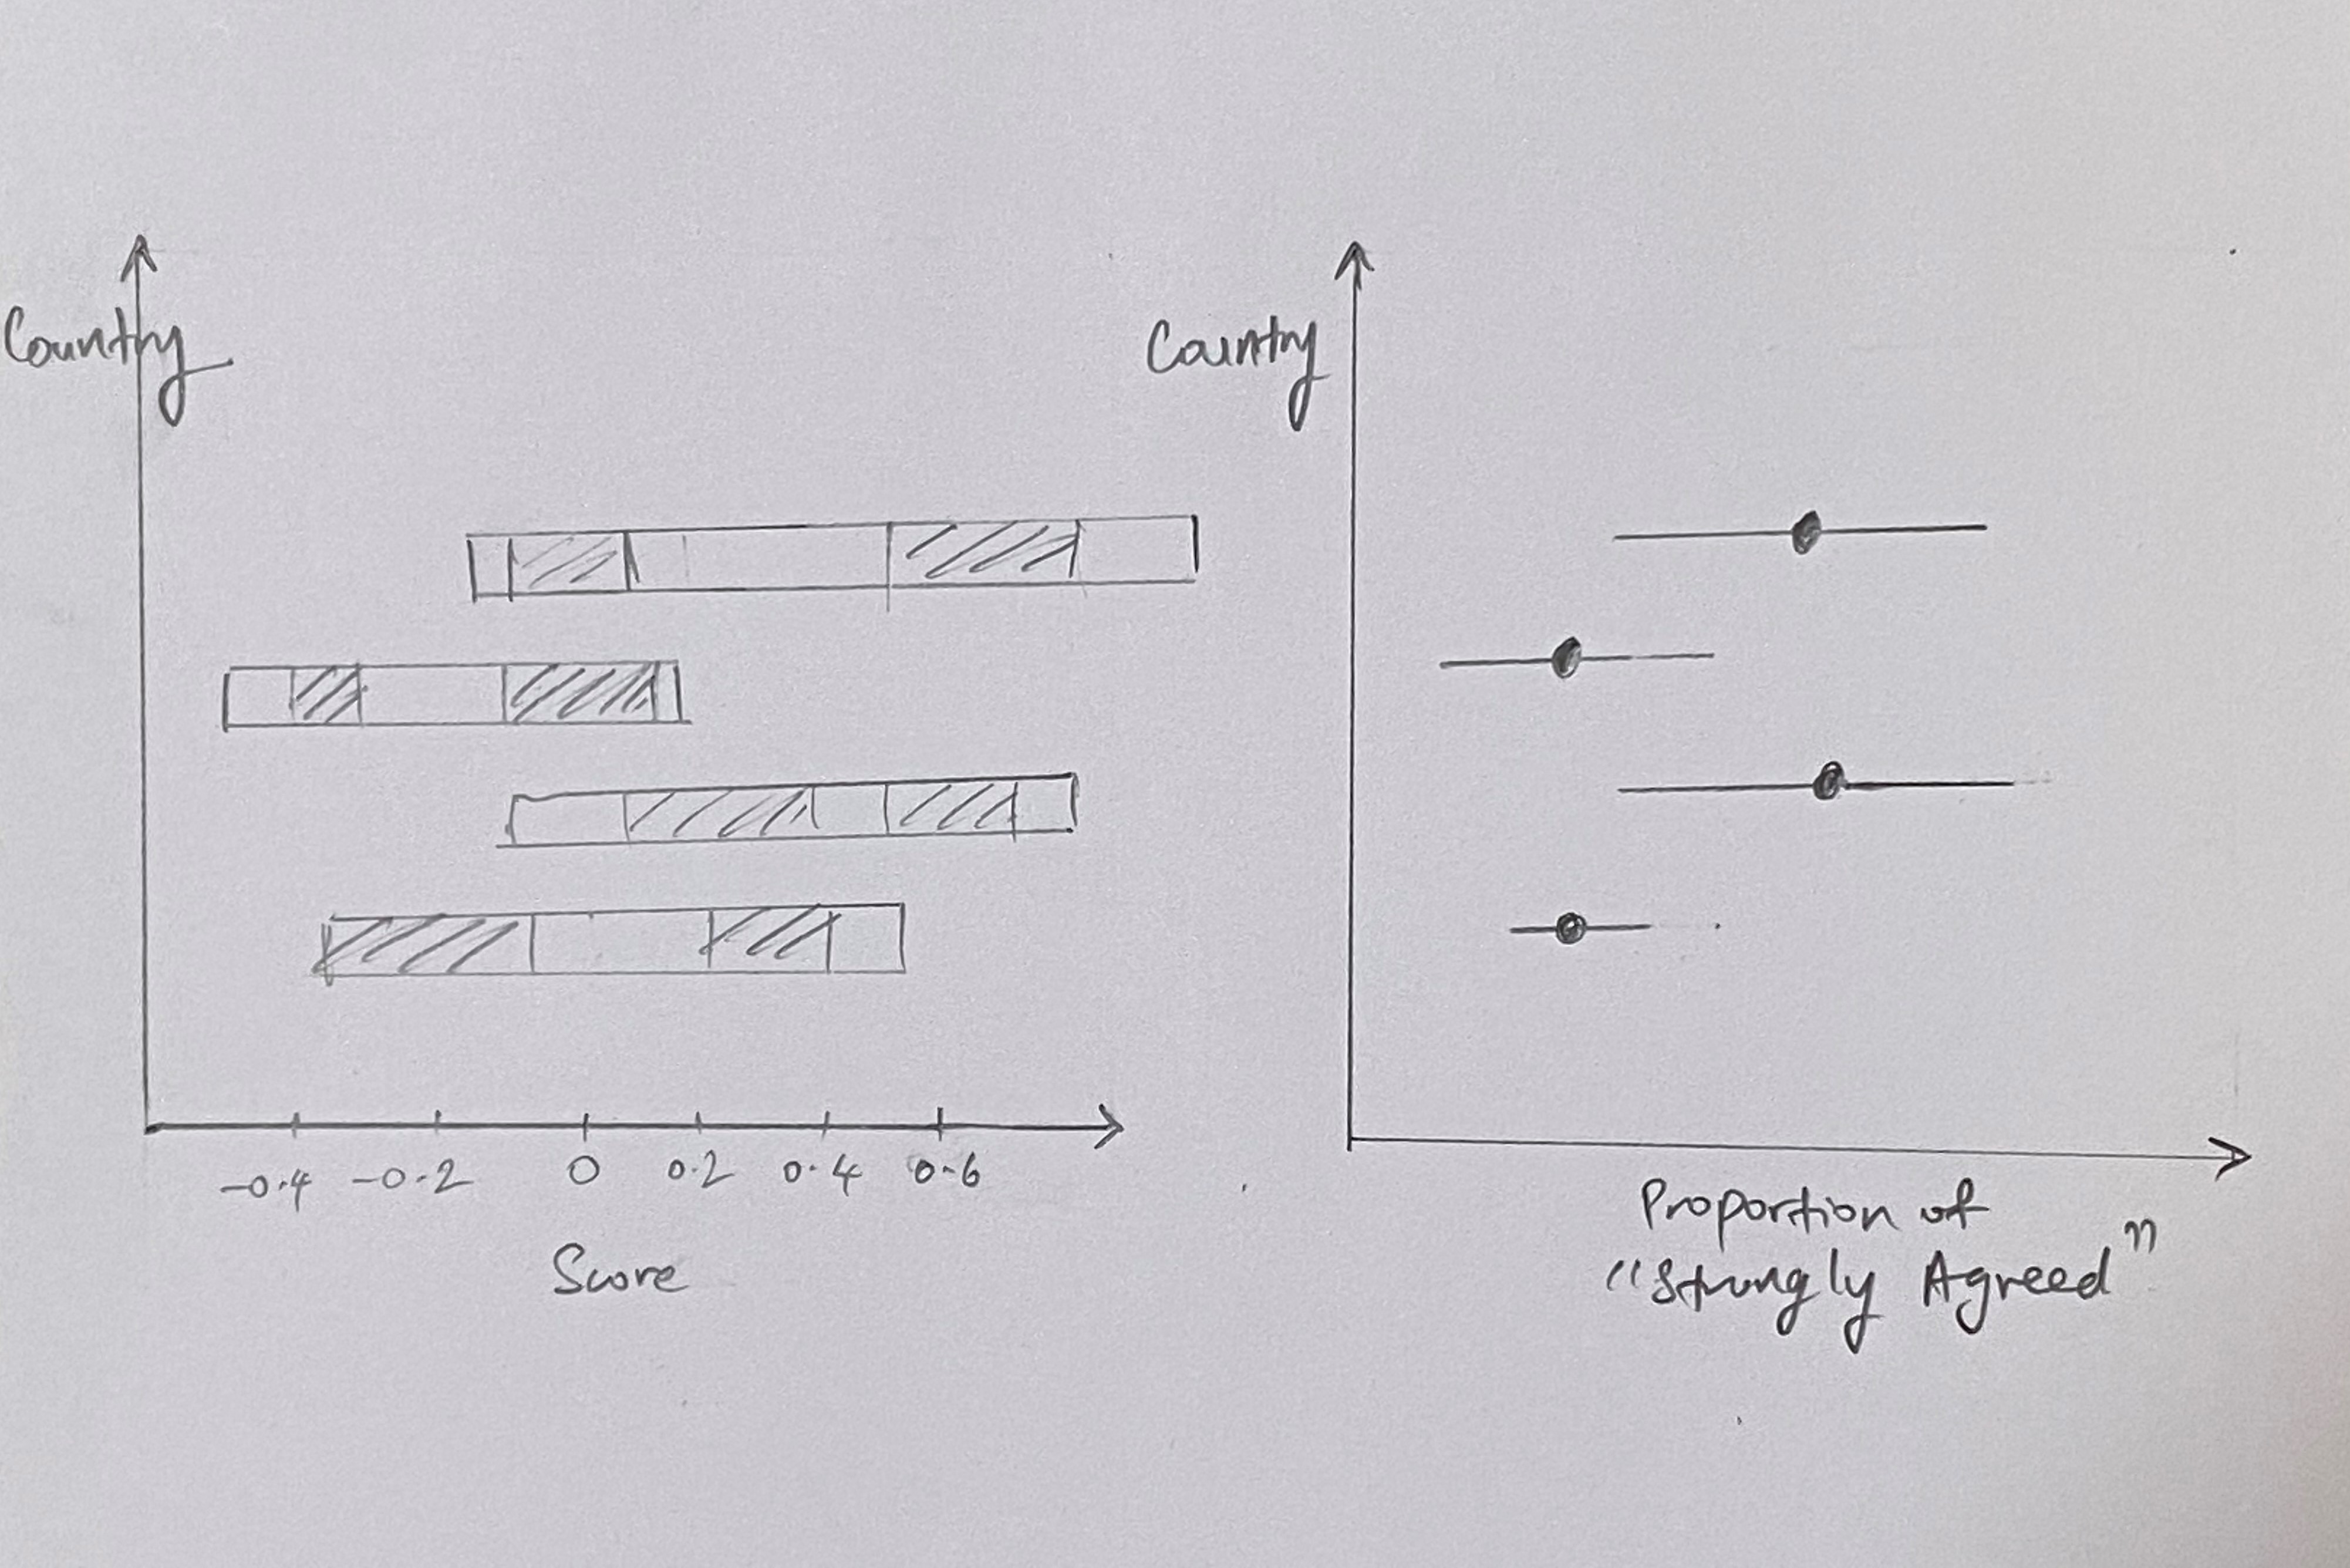 Country
-0.4 -0.2 0 0.2 0.4 0.6
Score
Country
Proportion of
"Strongly Agreed"